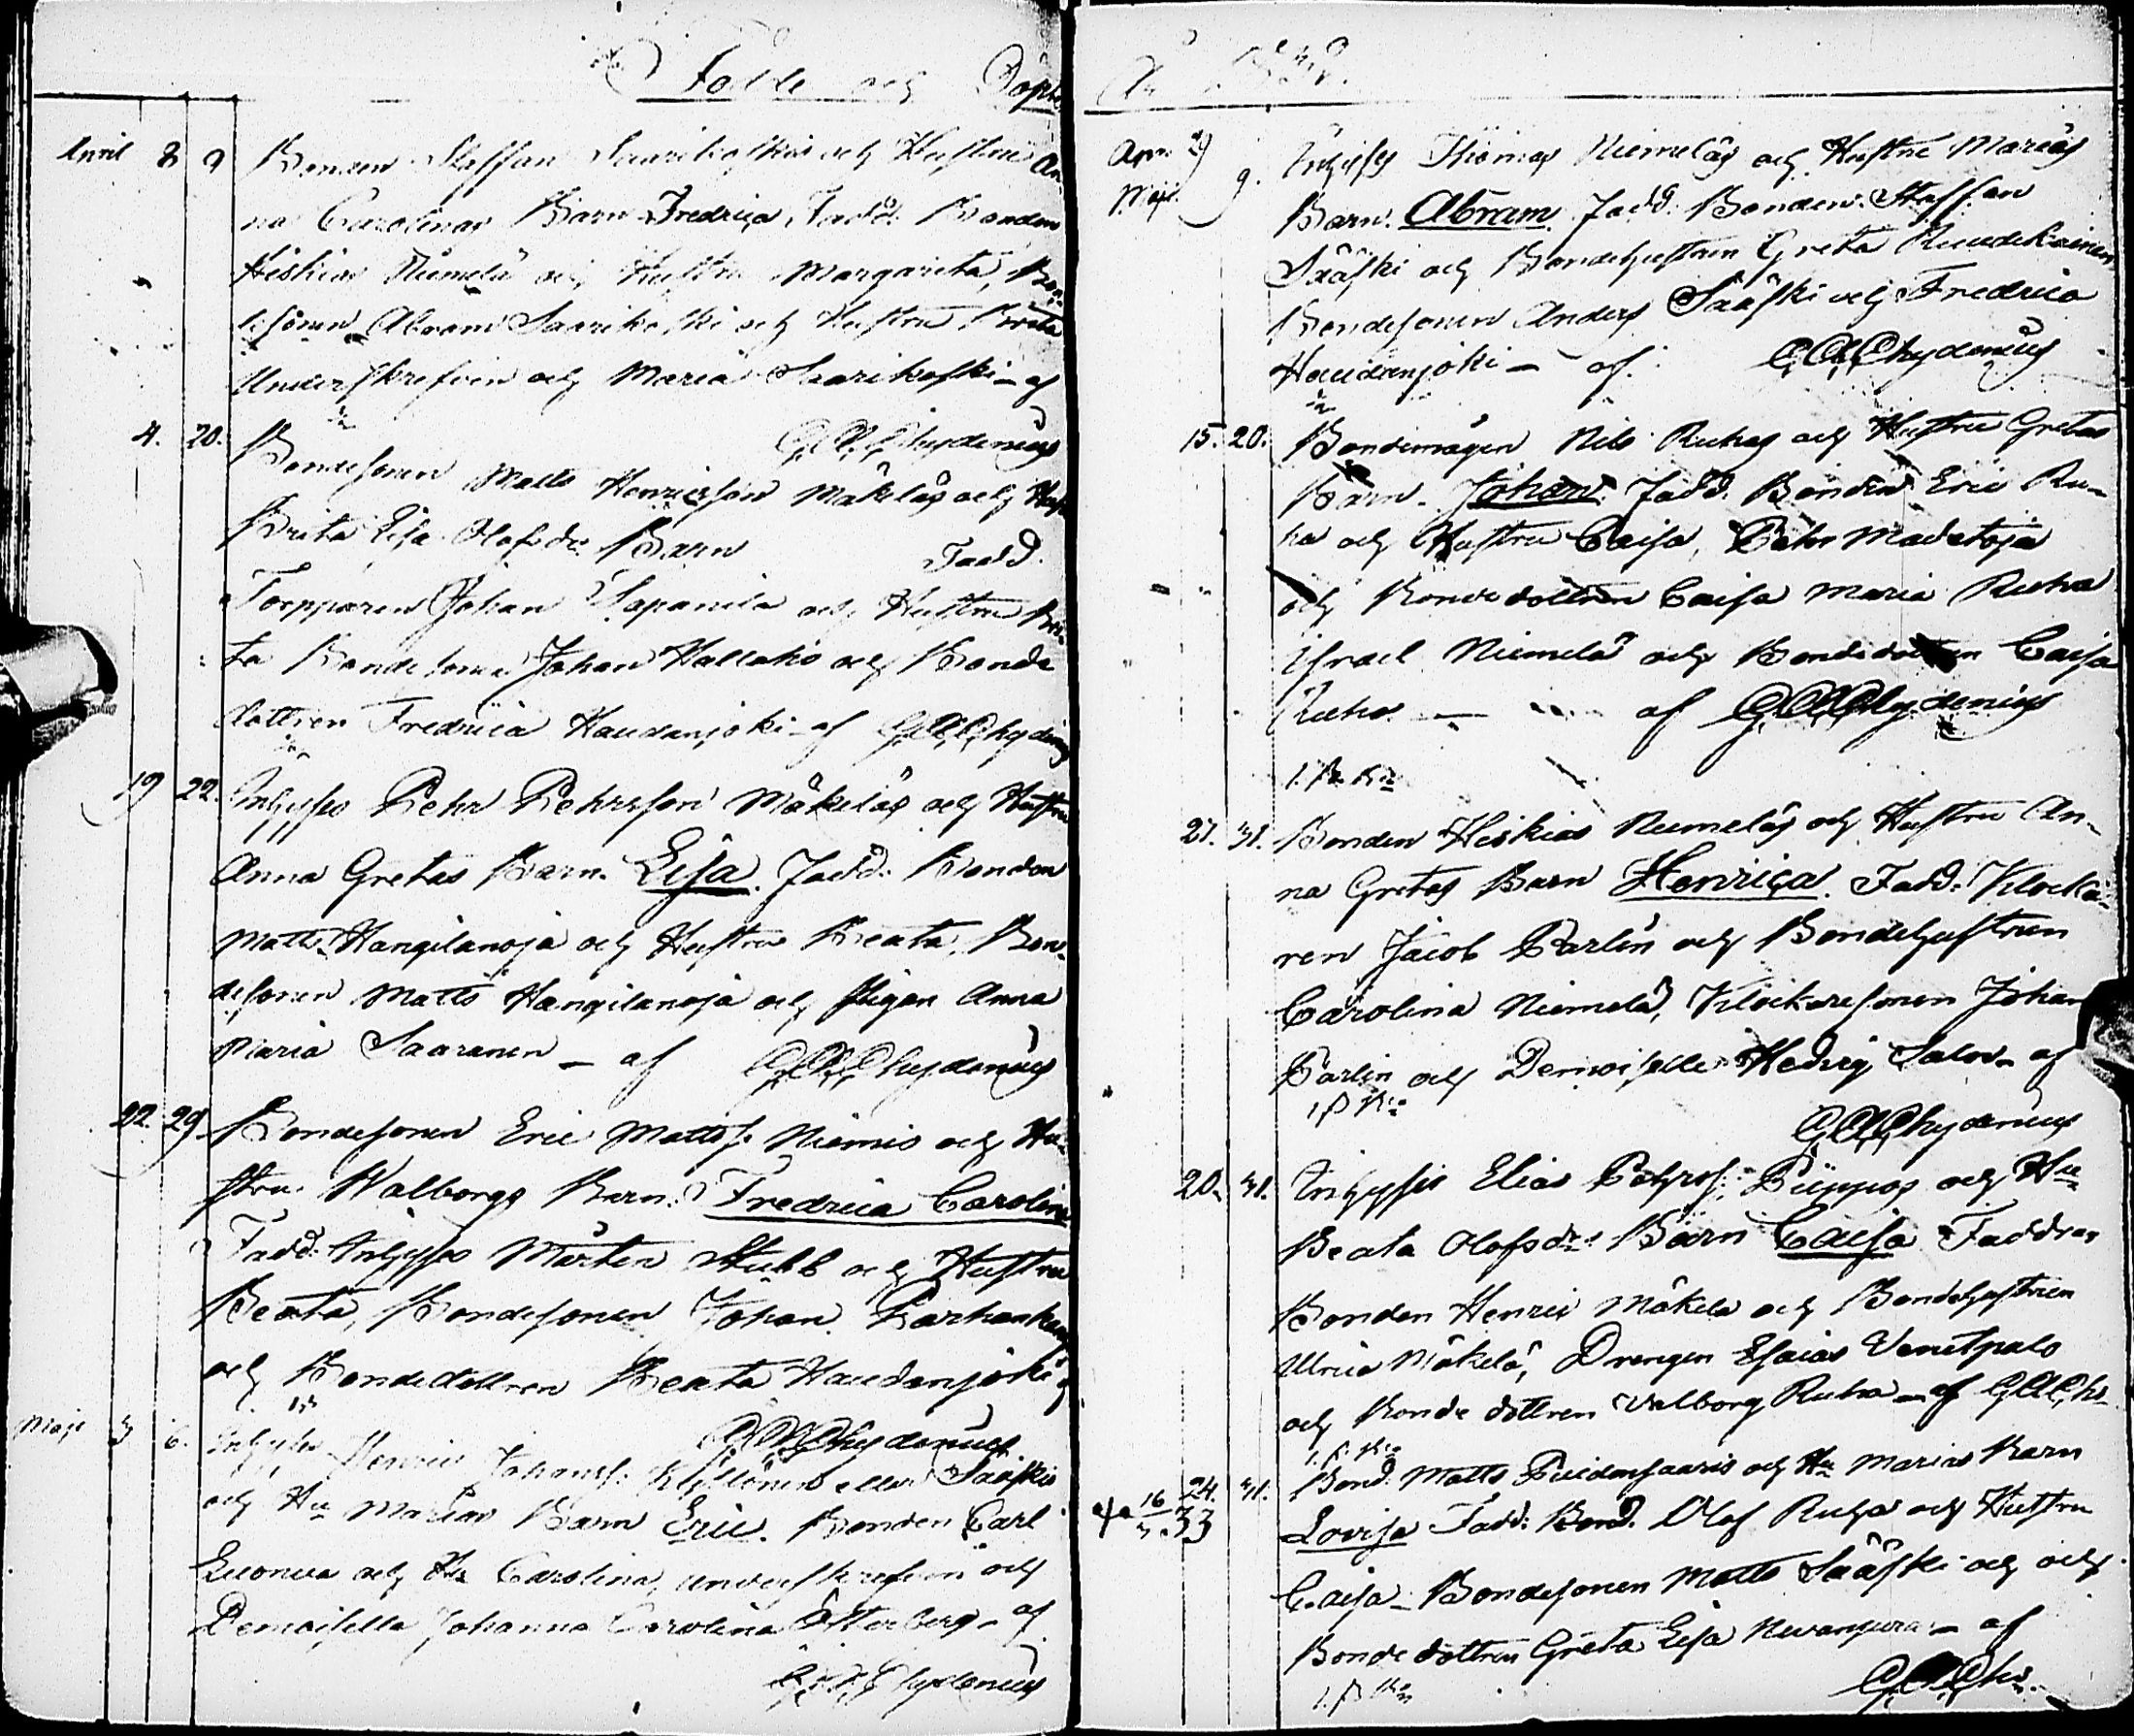 Födde och Döpte
April 8 9 Bonden Staffan Saarikoskis och Hustru An-
na Carolinas Barn Fredrica Fadd: Bonden
Hiskias Niemelä och Hustru Margareta, Bon-
desonen Abram Saarikoski och Hustru Brita
Underskrefven och Maria Saarikoski - af
G.A. Chydenius
4. 20. Bondesonen Matts Henricsson Mäkeläs och Hust
Brita Lisa Olofsdr Barn Fadd.
Torpparen Johan Sapanila och Hustru Bri-
ta Bondesonen Johan Hallako och Bonde
dottren Fredrica Haudanjoki - af G.A. Chydenius
19 22. Inhyses Pehr Pehrsson Mäkeläs och Hustru
Anna Gretas Barn. Lisa. Fadd: Bonden
Matts Kangilanoja och Hustru Beata, Bon-
desonen Matts Kangilanoja och Pigan Anna
Maria Saaranen - af G.A. Chydenius
22. 29 Bondesonen Eric Mattss: Niemis och Hu-
stru Walborgs Barn: Fredrica Carolina
Fadd: Inhyses Mårten Stubb och Hustru
Beata, Bondesonen Johan
och Bondedottren Beata Haudanjoki
G.A. Chydenius
Maji 3 6. Inhyses Henric Johanss: eller Sääskis
och Hu Marias Barn Eric. Bonden Carl
Luonua och Hu Carolina, underskrefven och
Demoiselle Johanna Carolina Österberg - af
G.A. Chydenius
År
Apr. 29
Maji 9. Inhyses Thomas Niemeläs och Hustru Marias
Barn. Abram. Fadd: Bonden Staffan
Sääski och Bondehustrun Greta
Bondesonen Anders Sääski och Fredrica
Haudanjoki - af. G.A. Chydenius
15. 20. Bondemågen Nils Ruhas och Hustru Gretas
Barn. Johan. Fadd. Bonden Eric Ru-
ha och Hustru Caisa, Pehr Madetoja
och Bondedottren Caisa Maria Ruha
Israel Niemelä och Bondedottren Caisa
Ruha - af G.A. Chydenius
27. 31. Bonden Heskias Niemeläs och Hustru An-
na Gretas Barn Henrica. Fadd: Klocka-
ren Jacob Parlin och Bondehustrun
Carolina Niemelä, Klockaresonen Johan
Parlin och Demoiselle Hedvig Salov - af
G.A. Chydenius
20. 31. Inhyses Elias Pehrss: Piippos och Hu
Beata Olofsdr: Barn Caisa Faddrar
Bonden Henric Mäkelä och Bondehustrun
Ulrica Mäkelä, Drengen Esaias Venetpalo
och Bondedottren Valborg Ruha - af G.A. Chs
24. 31. Bond: Matts Puidansaaris och Hu Marias Barn
Lovisa Fadd: Bond. Olof Ruha och Hustru
Caisa - Bondesonen Matts Sääski och och
Bondedottren Greta Lisa - af
G.A. Chs.